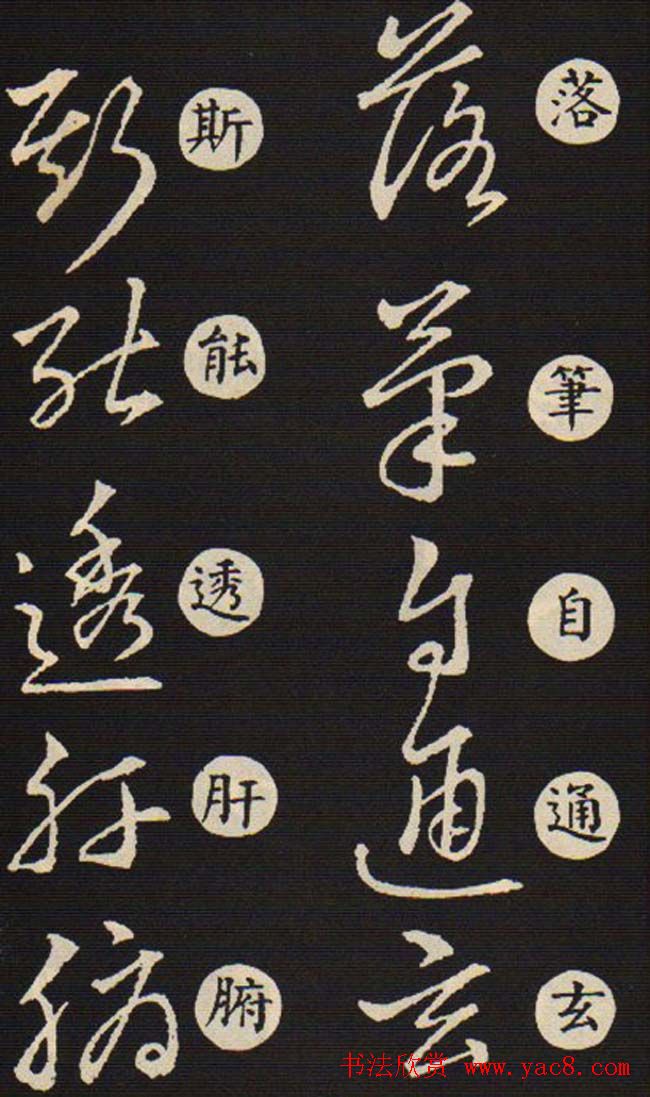 落筆自通玄
斯能透肝腑
书法欣赏 www.yac8.com